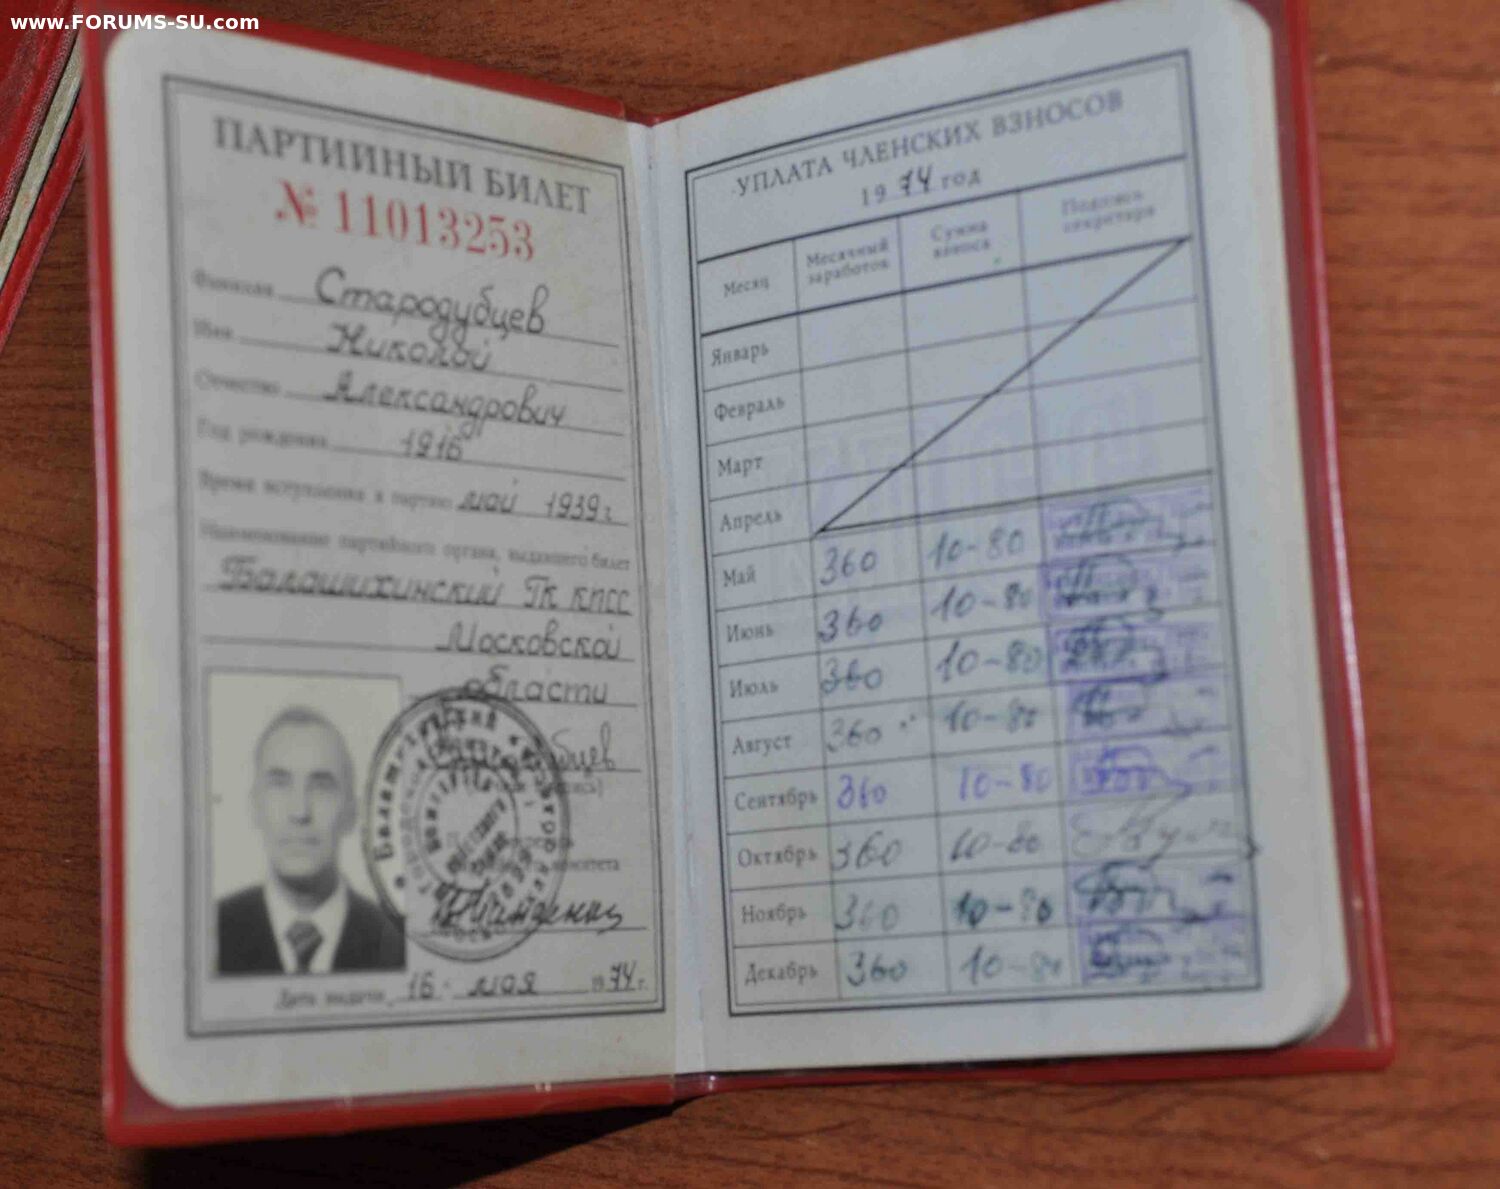 www.FORUMS-SU.com
ПАРТИЙНЫЙ БИЛЕТ
№ 11013253
Фамилия Стародубцев
Имя Николай
Отчество Александрович
Год рождения 1916
Время вступления в партию май 1939 г.
Наименование партийного органа, выдавшего билет
Балашихинский ГК КПСС
Московской
области
Дата выдачи 16 мая 1974 г.
УПЛАТА ЧЛЕНСКИХ ВЗНОСОВ
1974 год
Месяц Месячный заработок Сумма взноса Подпись секретаря
Январь
Февраль
Март
Апрель
Май 360 10-80
Июнь 360 10-80
Июль 360 10-80
Август 360 10-80
Сентябрь 360 10-80
Октябрь 360 10-80
Ноябрь 360 10-80
Декабрь 360 10-80